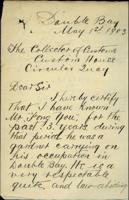 Double Bay
May 1st 1903
The Collector of Customs
Custom House
Circular Quay
Dear Sir
I hereby certify
that I have known
Mr. Fong Yue, for the
past 3 years during
that period he was a
gardener carrying on
his occupation in
Double Bay. He is a
very respectable
quiet, and law-abiding